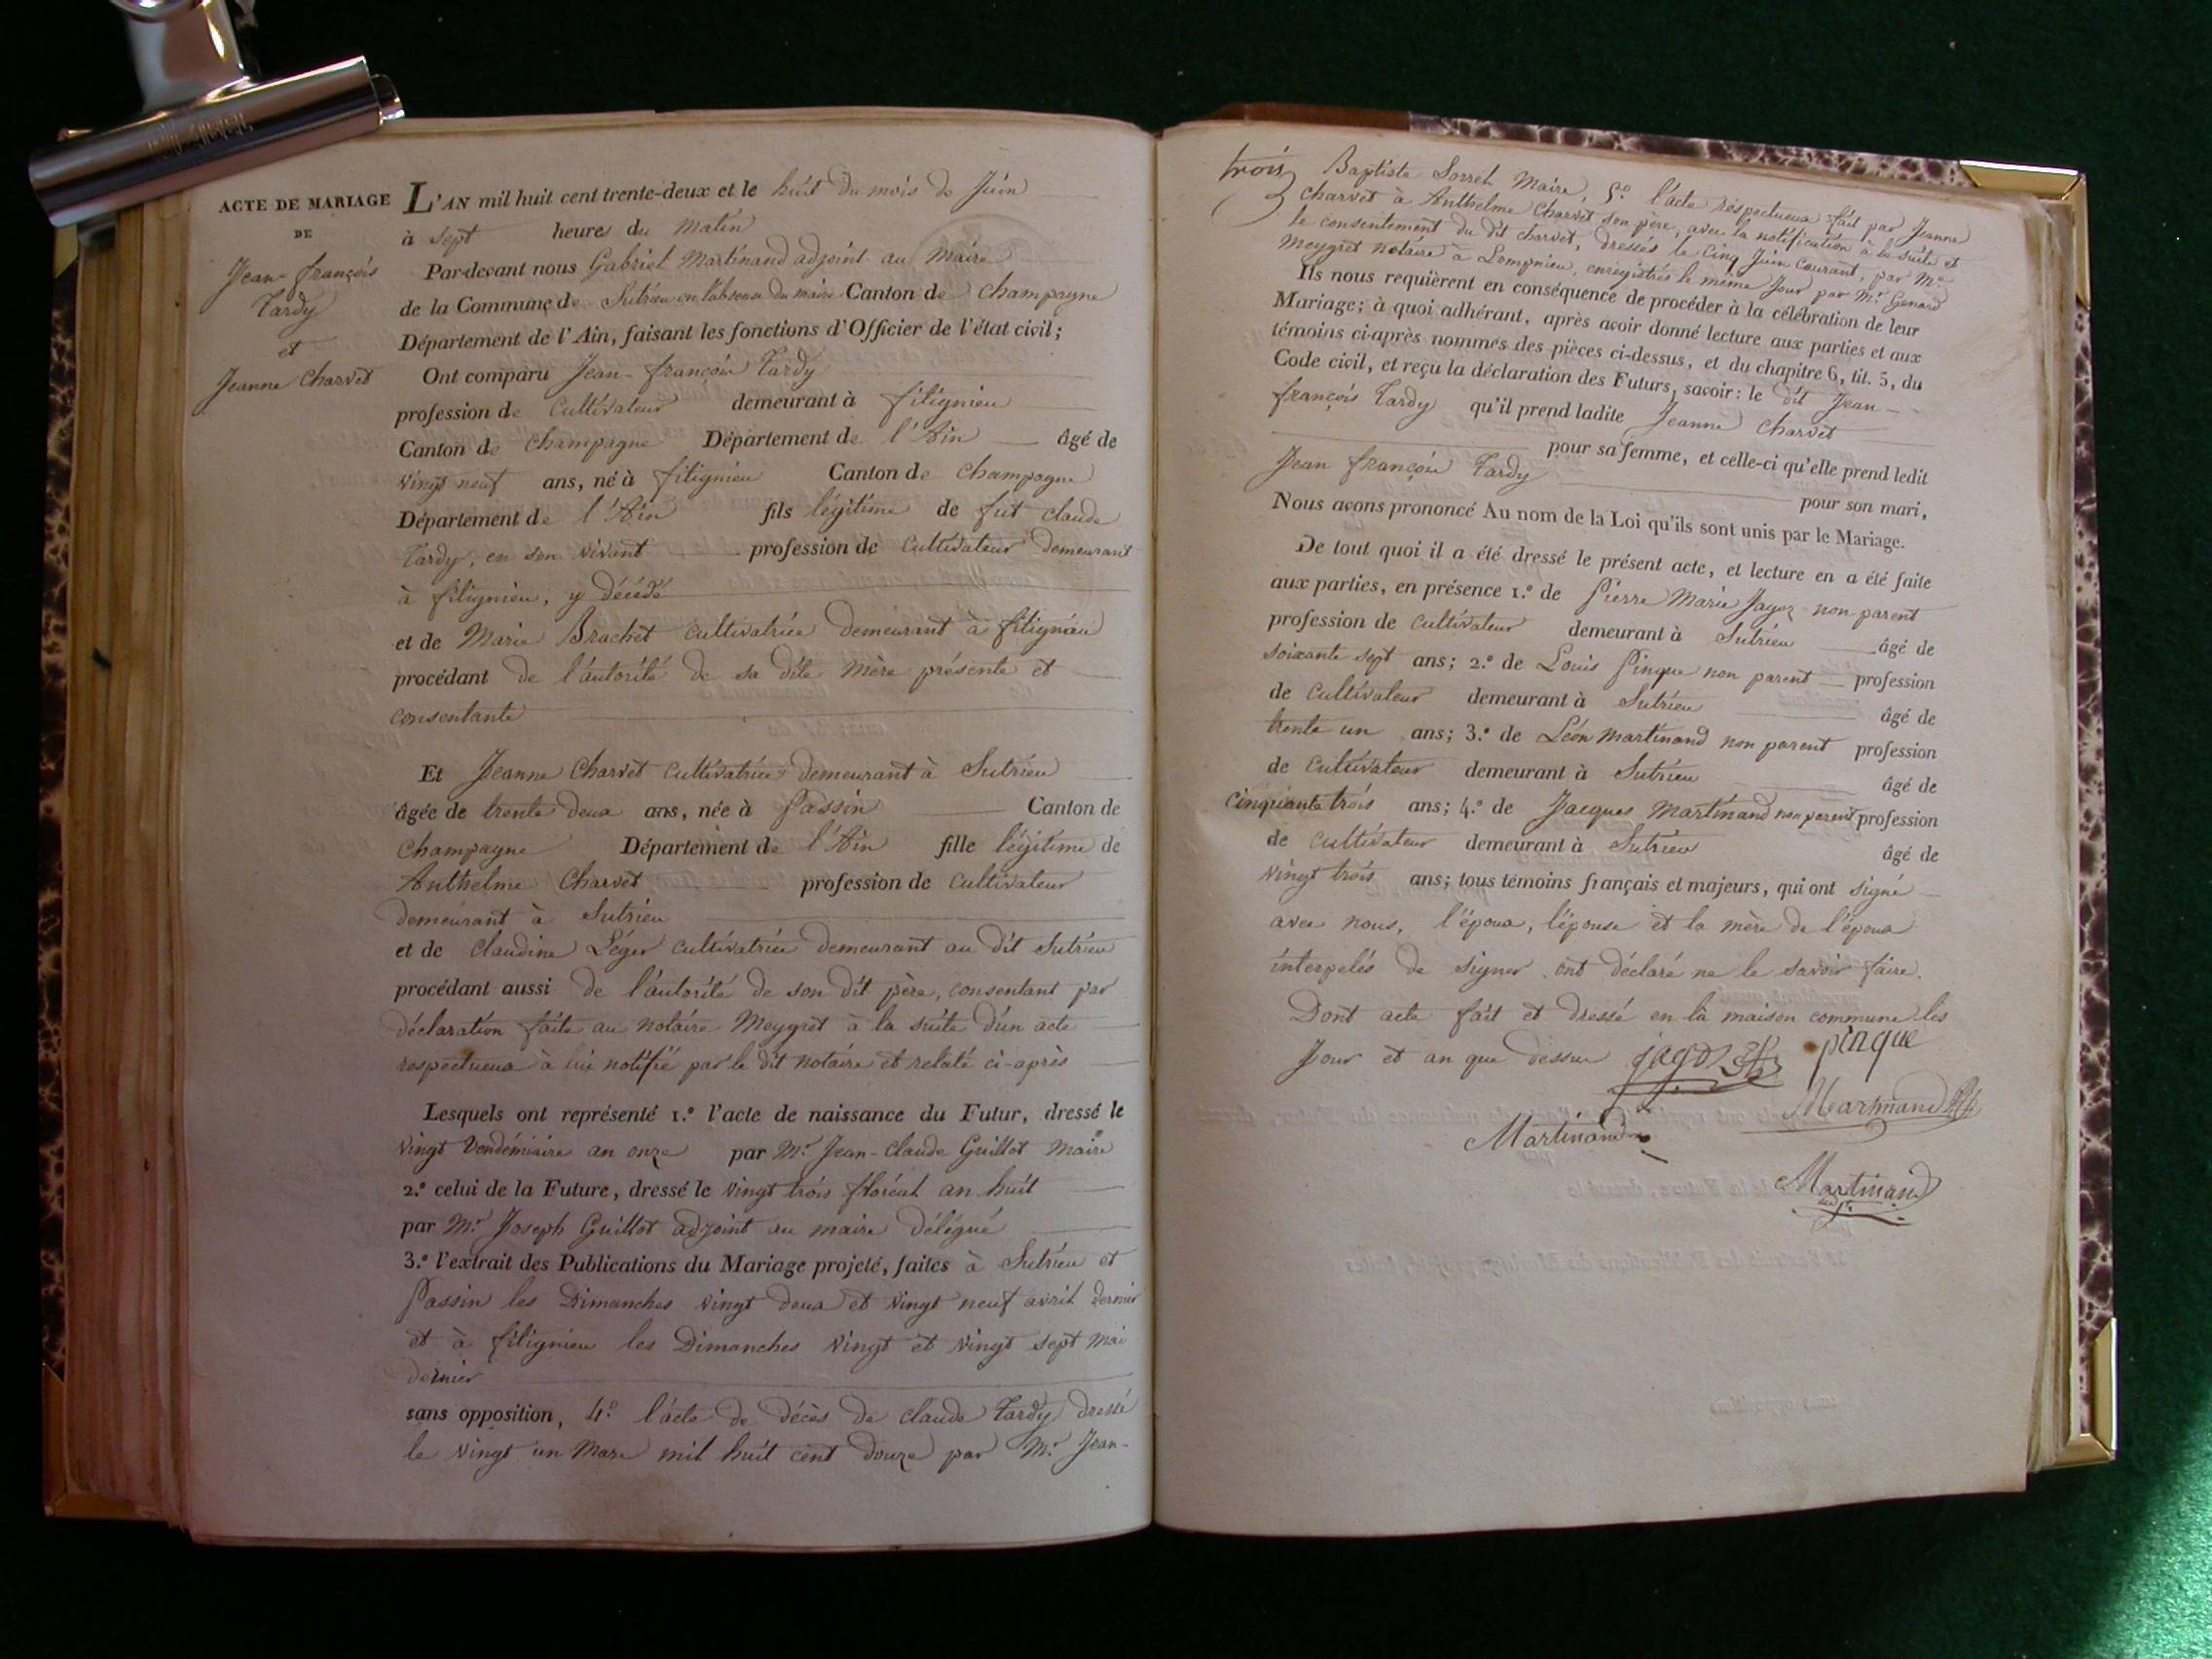 ACTE DE MARIAGE
DE
Jean-françois
Tardy
et
Jeanne Charvet
L'AN mil huit cent trente-deux et le huit du mois de Juin
à sept heures du Matin
Par-devant nous Gabriel Martinand adjoint au Maire
de la Commune de Sutrieu en l'absence du maire Canton de Champagne
Département de l'Ain, faisant les fonctions d'Officier de l'état civil;
Ont comparu Jean-françois Tardy
profession de Cultivateur demeurant à filignieu
Canton de Champagne Département de l'Ain âgé de
vingt neuf ans, né à filignieu Canton de Champagne
Département de l'Ain fils légitime de fut claude
Tardy, en son vivant profession de Cultivateur demeurant
à filignieu, y décédé
et de Marie Brachet cultivatrice demeurant à filignieu
procédant de l'autorité de sa dite Mère présente et
consentante
Et Jeanne Charvet cultivatrice demeurant à Sutrieu
âgée de trente deux ans, née à Passin Canton de
Champagne Département de l'Ain fille légitime de
Anthelme Charvet profession de Cultivateur
demeurant à Sutrieu
et de Claudine Léger cultivatrice demeurant au dit Sutrieu
procédant aussi de l'autorité de son dit père, consentant par
déclaration faite au notaire Meygret à la suite d'un acte
respectueux à lui notifié par le dit notaire et relaté ci-après
Lesquels ont représenté 1.º l'acte de naissance du Futur, dressé le
vingt Vendémiaire an onze par Mr Jean-Claude Guillot Maire
2.º celui de la Future, dressé le vingt trois floréal an huit
par Mr Joseph Guillot adjoint au maire délégué
3.º l'extrait des Publications du Mariage projeté, faites à Sutrieu et
Passin les Dimanches vingt deux et vingt neuf avril dernier
et à filignieu les Dimanches vingt et vingt sept mai
dernier
sans opposition, 4º l'acte de décès de Claude Tardy dressé
le vingt un Mars mil huit cent douze par Mr Jean-
trois
Baptiste Sorrel Maire, 5º l'acte respectueux fait par Jeanne
Charvet à Anthelme Charvet son père, avec la notification à la suite et
le consentement du dit charvet, dressés le cinq Juin courant, par Me
Meygret notaire à Lompnieu, enregistrés le même jour par Mr Genard
Ils nous requièrent en conséquence de procéder à la célébration de leur
Mariage; à quoi adhérant, après avoir donné lecture aux parties et aux
témoins ci-après nommés des pièces ci-dessus, et du chapitre 6, tit. 5, du
Code civil, et reçu la déclaration des Futurs, savoir: le dit Jean-
françois Tardy qu'il prend ladite Jeanne Charvet
pour sa femme, et celle-ci qu'elle prend ledit
Jean françois Tardy pour son mari,
Nous avons prononcé Au nom de la Loi qu'ils sont unis par le Mariage.
De tout quoi il a été dressé le présent acte, et lecture en a été faite
aux parties, en présence 1.º de Pierre Marie Jagoz non parent
profession de cultivateur demeurant à Sutrieu âgé de
soixante sept ans; 2.º de Louis Pinque non parent profession
de Cultivateur demeurant à Sutrieu âgé de
trente un ans; 3.º de Léon Martinand non parent profession
de Cultivateur demeurant à Sutrieu âgé de
cinquante trois ans; 4.º de Jacques Martinand non parent profession
de Cultivateur demeurant à Sutrieu âgé de
vingt trois ans; tous témoins français et majeurs, qui ont signé
avec nous, l'époux, l'épouse et la mère de l'époux
interpelés de signer ont déclaré ne le savoir faire.
Dont acte fait et dressé en la maison commune les
Jour et an que dessus jagoz pinque
Martinand
Martinand
Martinand